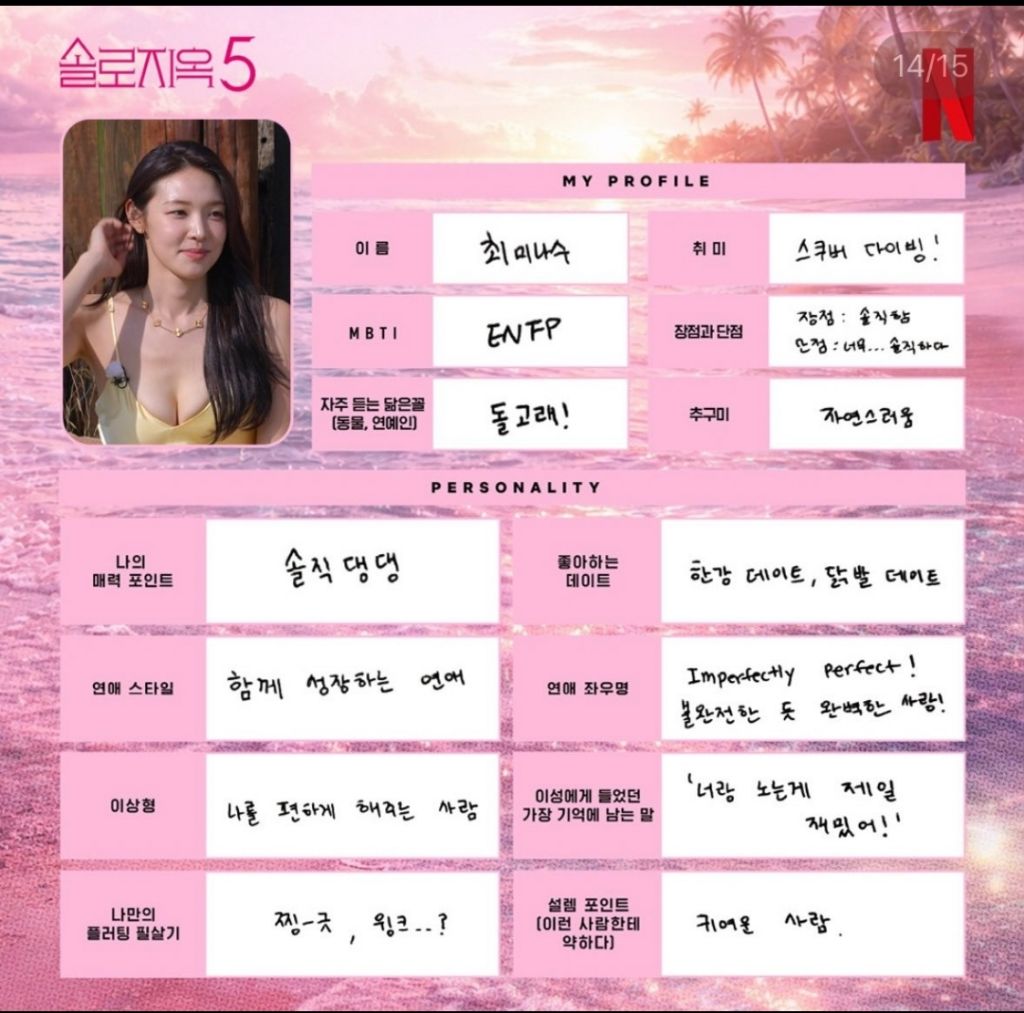 솔로지옥5
14/15
N
MY PROFILE
이름
최미나수
취미
스쿠버 다이빙!
MBTI
ENFP
장점과 단점
장점 : 솔직함
단점 : 너무... 솔직하다
자주 듣는 닮은꼴
(동물, 연예인)
돌고래!
추구미
자연스러움
PERSONALITY
나의
매력 포인트
솔직 댕댕
좋아하는
데이트
한강 데이트, 닭발 데이트
연애 스타일
함께 성장하는 연애
연애 좌우명
Imperfectly perfect!
불완전한 듯 완벽한 사랑!
이상형
나를 편하게 해주는 사람
이성에게 들었던
가장 기억에 남는 말
'너랑 노는게 제일
재밌어!'
나만의
플러팅 필살기
찜-긋, 윙크...?
설렘 포인트
(이런 사람한테
약하다)
귀여운 사람.